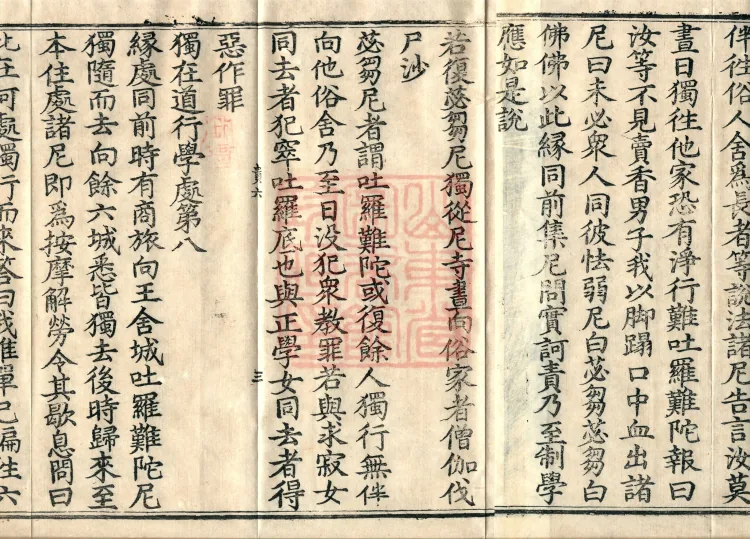 伴往俗人舍為長者等說法諸尼告言汝莫
晝日獨往他家恐有淨行難吐羅難陀報曰
汝等不見賣香男子我以脚蹋口中血出諸
尼曰未必衆人同彼怯弱尼白苾芻苾芻白
佛佛以此緣同前集尼問實訶責乃至制學
應如是說
若復苾芻尼獨從尼寺晝向俗家者僧伽伐
尸沙
苾芻尼者謂吐羅難陀或復餘人獨行無伴
向他俗舍乃至日没犯衆教罪若與求寂女
同去者犯窣吐羅底也與正學女同去者得
惡作罪
賣六
三
獨在道行學處第八
緣處同前時有商旅向王舍城吐羅難陀尼
獨隨而去向餘六城悉皆獨去後時歸來至
本住處諸尼即為按摩解勞令其歇息問曰
比在何處獨行而來答曰我唯單己遍往六